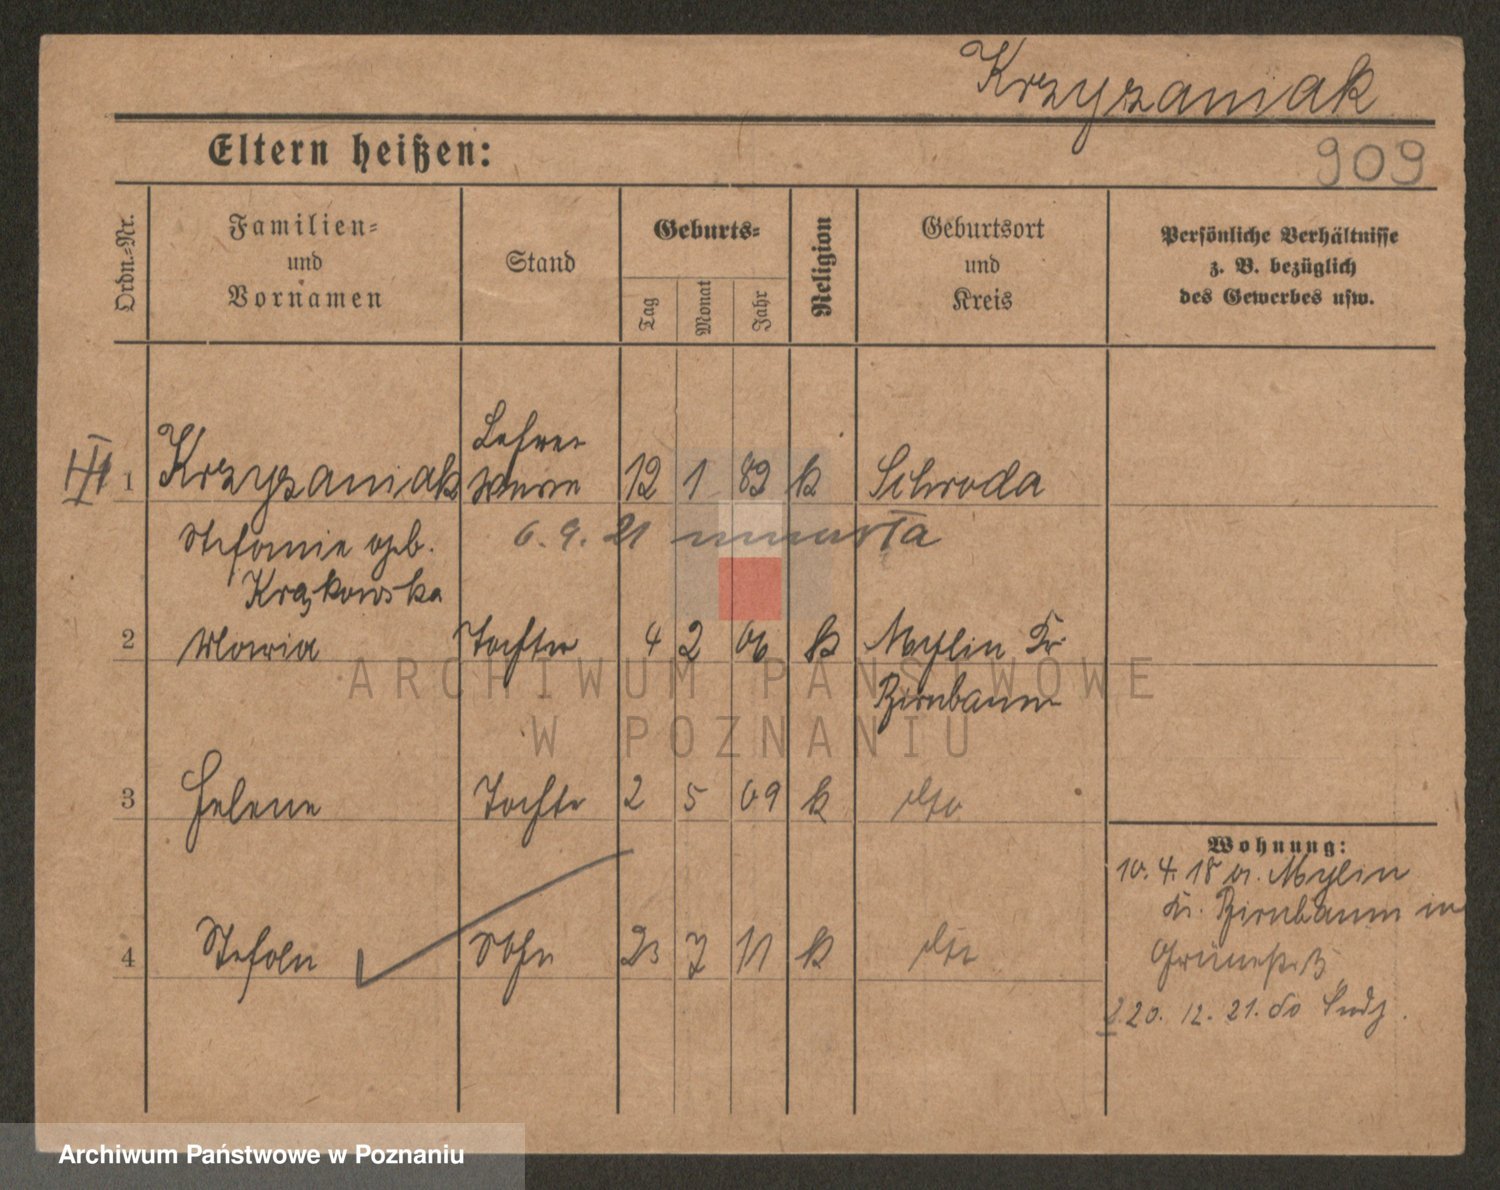 Krzyzaniak
Eltern heißen:
909
Ordn.-Nr.
Familien- und Vornamen
Stand
Geburts-
Tag
Monat
Jahr
Religion
Geburtsort und Kreis
Persönliche Verhältnisse z. B. bezüglich des Gewerbes usw.
Lehrer
1 Krzyzaniak Wwe 12 1 89 k Schroda
Stefanie geb. 6. 9. 21 umarła
Krążkowska
2 Maria Tochter 4 2 06 k Mylin Kr.
Birnbaum
3 Helene Tochter 2 5 09 k dto
Wohnung:
10. 4. 18 a. Mylin
Kr. Birnbaum in
4 Stefan Sohn 23 7 11 k dto
20. 12. 21. do
ARCHIWUM PAŃSTWOWE
W POZNANIU
Archiwum Państwowe w Poznaniu